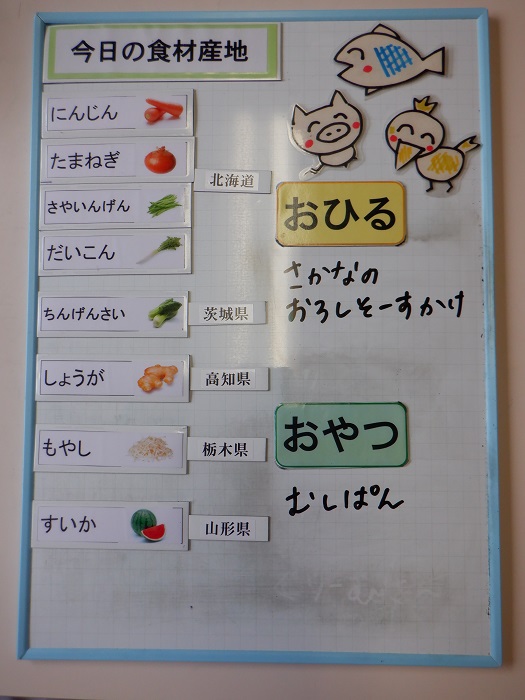 今日の食材産地
にんじん
たまねぎ
北海道
さやいんげん
だいこん
ちんげんさい
茨城県
しょうが
高知県
もやし
栃木県
すいか
山形県
おひる
さかなの
おろしそーすかけ
おやつ
むしぱん